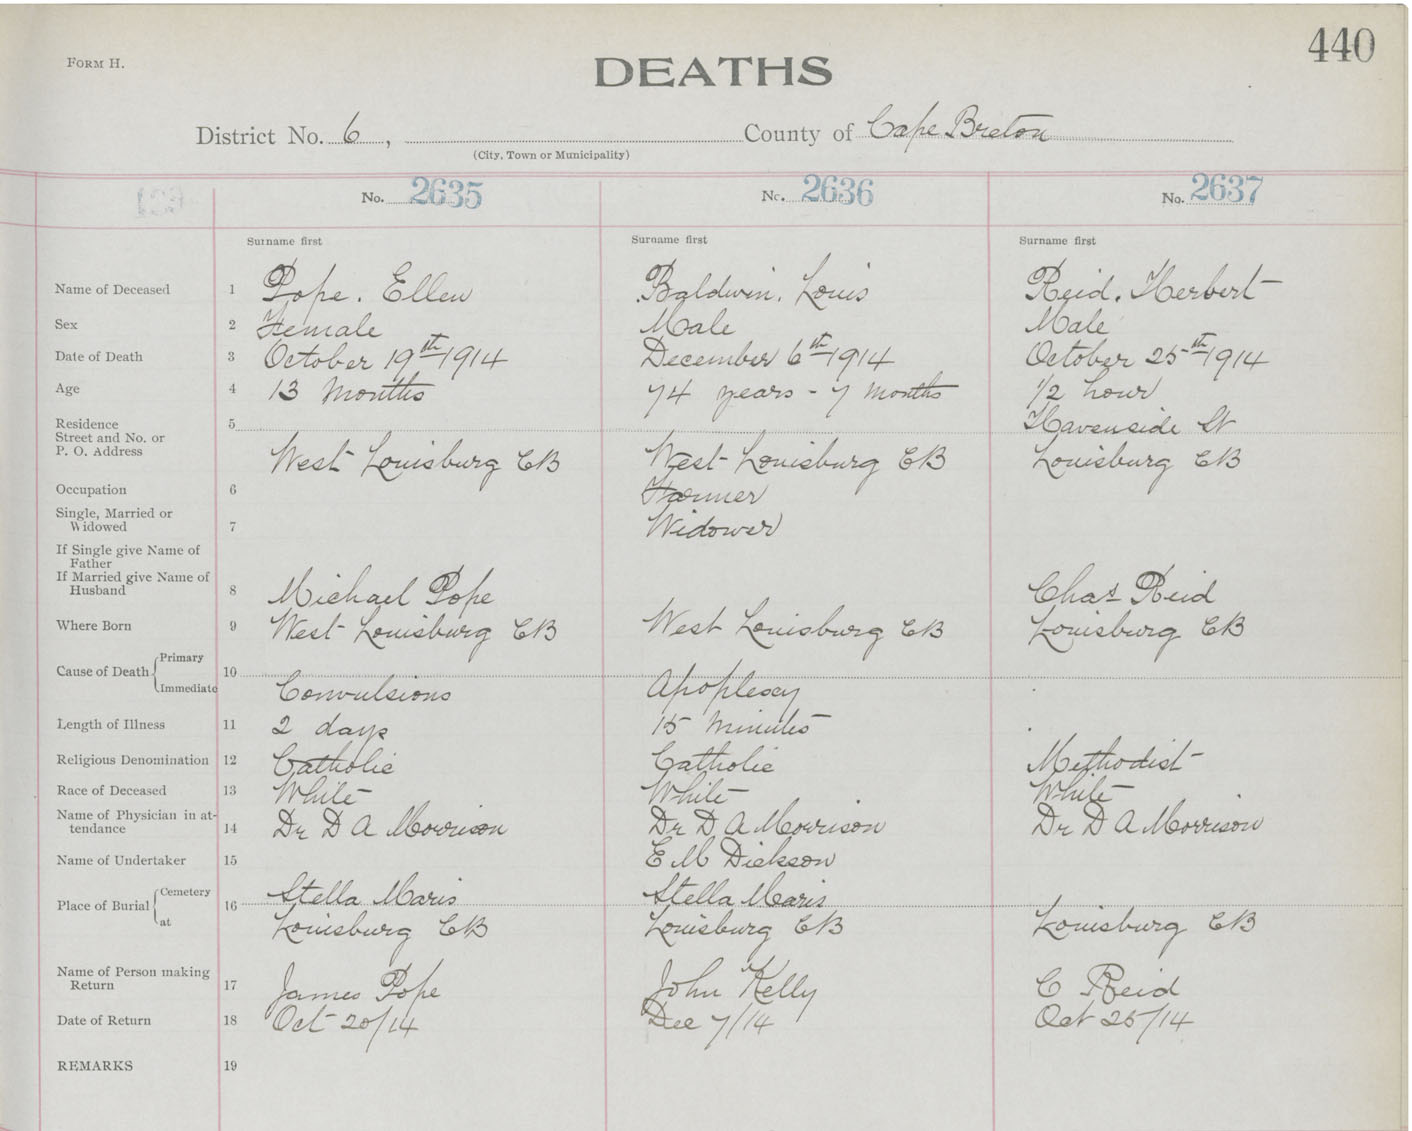 440
FORM H.
DEATHS
District No. 6, County of Cape Breton
(City, Town or Municipality)
No. 2635 No. 2636 No. 2637
Surname first Surname first Surname first
Name of Deceased 1 Pope. Ellen Baldwin. Louis Reid. Herbert
Sex 2 Female Male Male
Date of Death 3 October 19th 1914 December 6th 1914 October 25th 1914
Age 4 13 Months 74 years - 7 months 1/2 hour
Residence 5 Havenside St
Street and No. or
P. O. Address West Louisburg CB West Louisburg CB Louisburg CB
Occupation 6 Farmer
Single, Married or
Widowed 7 Widower
If Single give Name of
Father
If Married give Name of
Husband 8 Michael Pope Chas Reid
Where Born 9 West Louisburg CB West Louisburg CB Louisburg CB
Cause of Death Primary 10
Immediate Convulsions Apoplexy
Length of Illness 11 2 days 15 minutes
Religious Denomination 12 Catholic Catholic Methodist
Race of Deceased 13 White White White
Name of Physician in at-
tendance 14 Dr D A Morrison Dr D A Morrison Dr D A Morrison
Name of Undertaker 15 E M Dickson
Place of Burial Cemetery 16 Stella Maris Stella Maris
at Louisburg CB Louisburg CB Louisburg CB
Name of Person making
Return 17 James Pope John Kelly C Reid
Date of Return 18 Oct 20/14 Dec 7/14 Oct 25/14
REMARKS 19